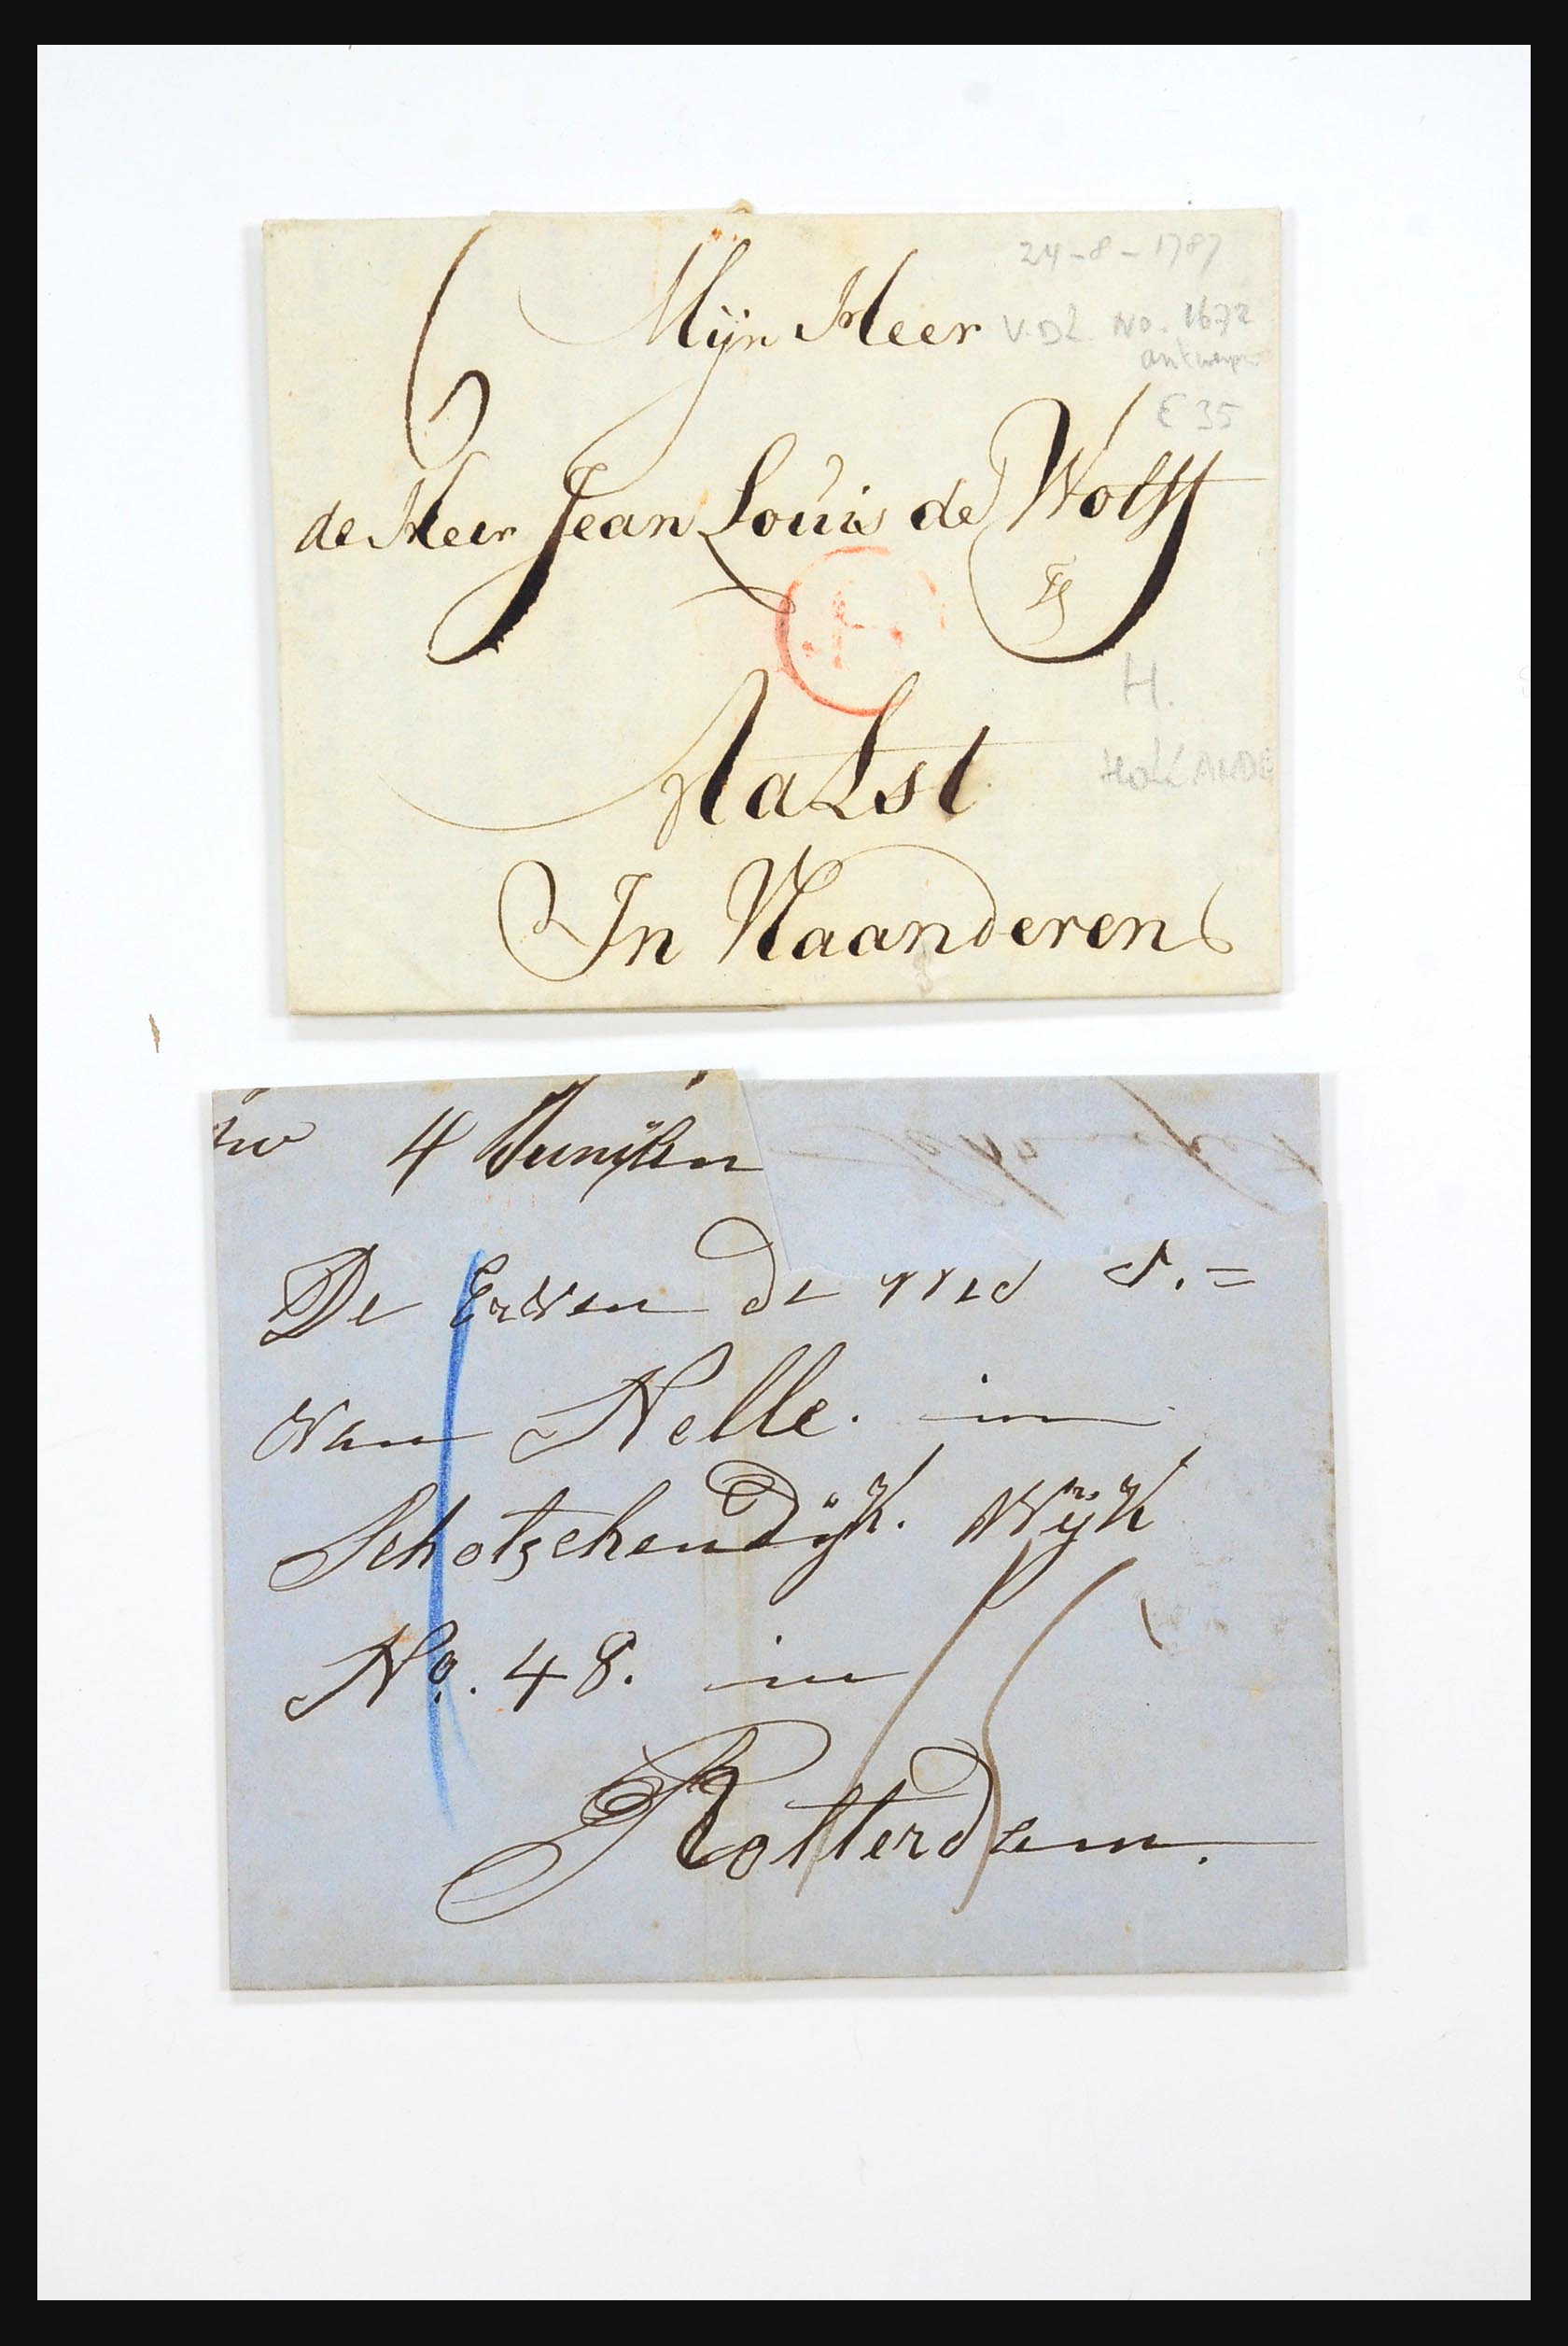 24-8-1787
6 Mijn Heer
V.DL. No. 1672
antwerpen
€ 35
de Heer Jean Louis de Wolff
H
H.
Aalst
HOLLANDE
In Vlaanderen
4 Tunÿken
De Erven de Wed J.=
van Nelle. in
Schotschendÿk. Wÿk
No. 48. in
15
Rotterdam.